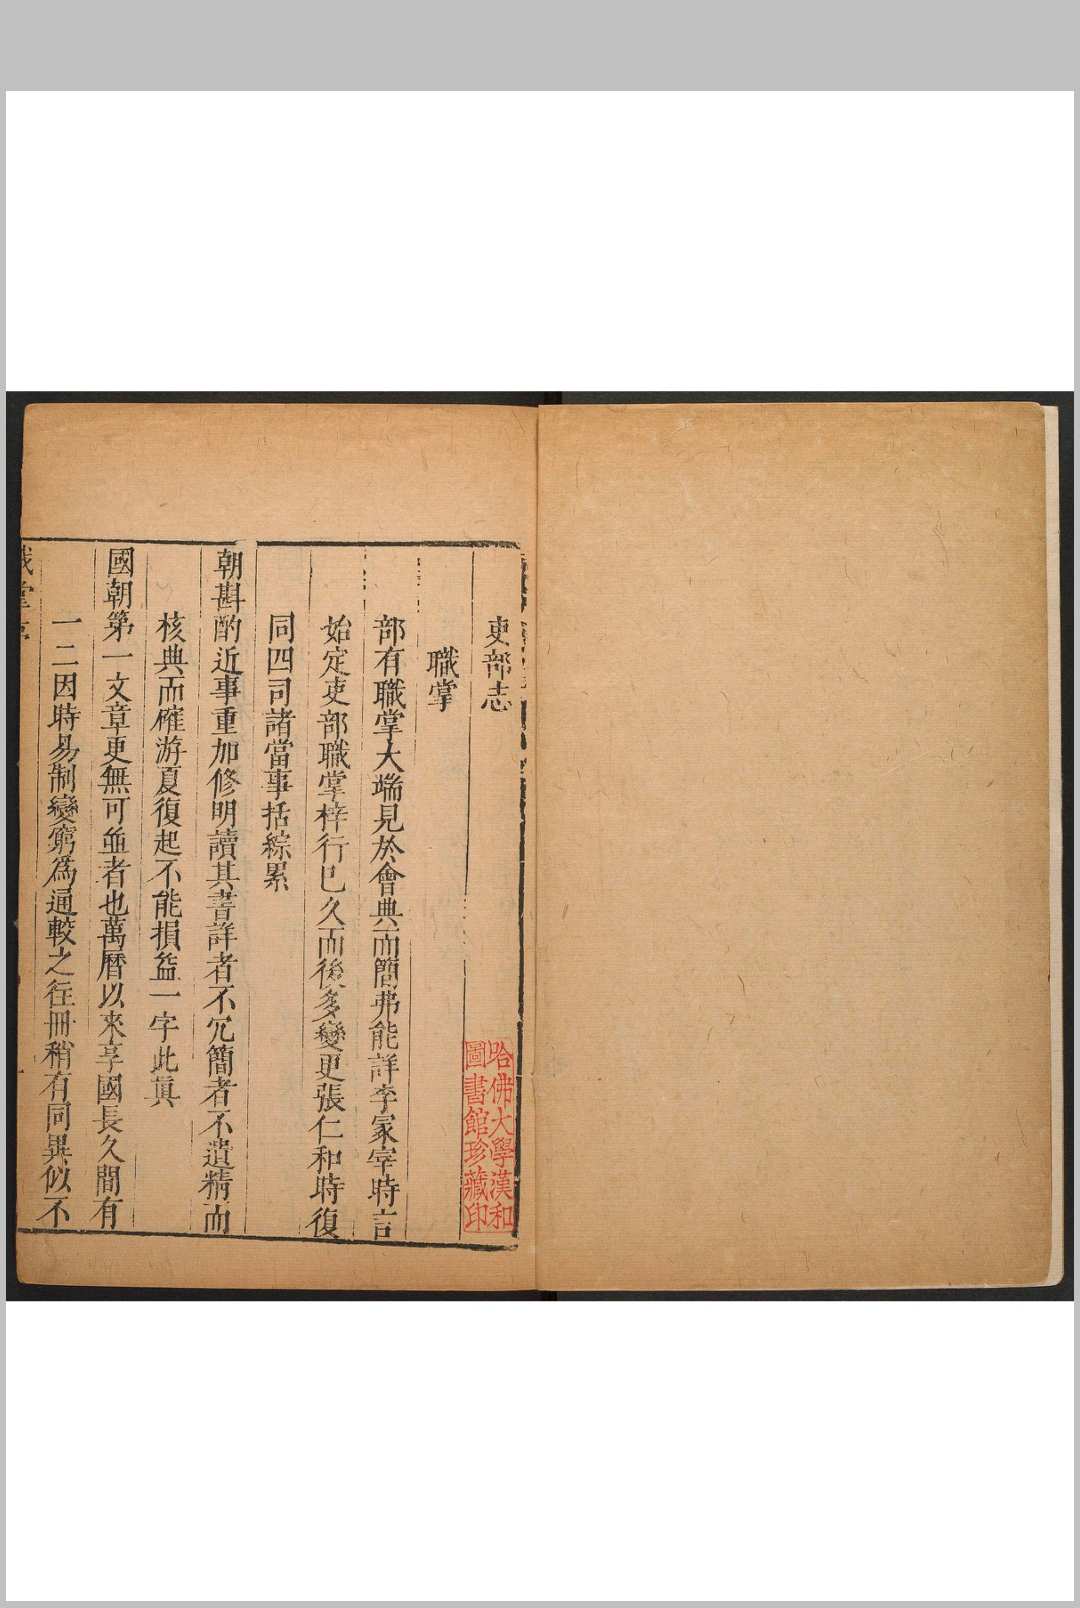 吏部志
職掌
部有職掌大端見於會典而簡弗能詳李冢宰時言
始定吏部職掌梓行已久而後多變更張仁和時復
同四司諸當事括綜累
朝斟酌近事重加修明讀其書詳者不冗簡者不遺精而
核典而確游夏復起不能損益一字此眞
國朝第一文章更無可並者也萬曆以來享國長久間有
一二因時易制變窮爲通較之往冊稍有同異似不
哈佛大學漢和
圖書館珍藏印